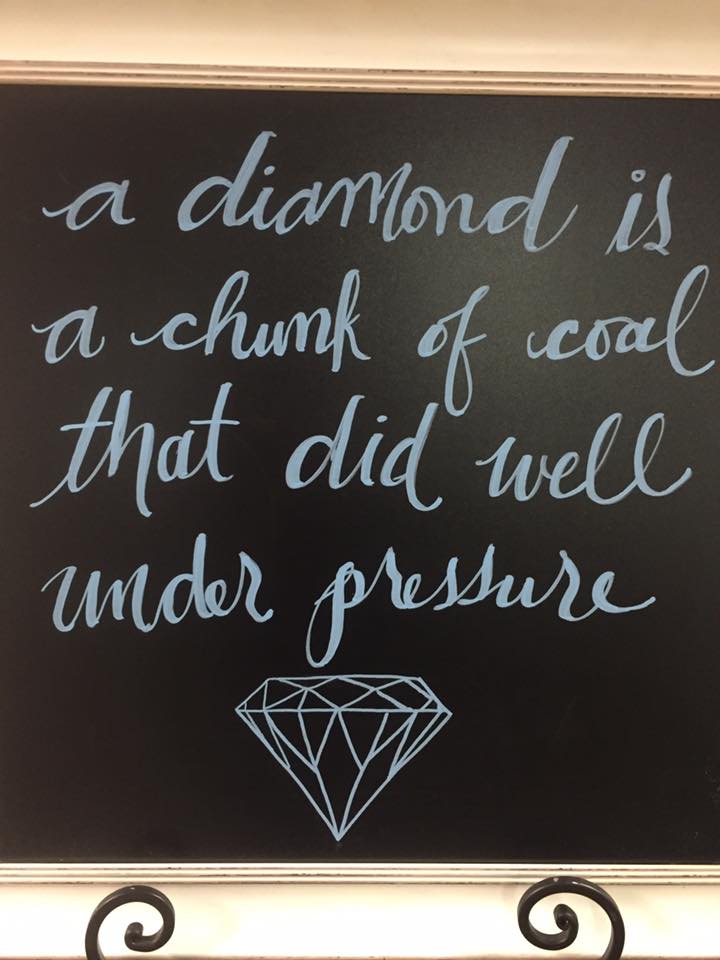 a diamond is
a chunk of coal
that did well
under pressure